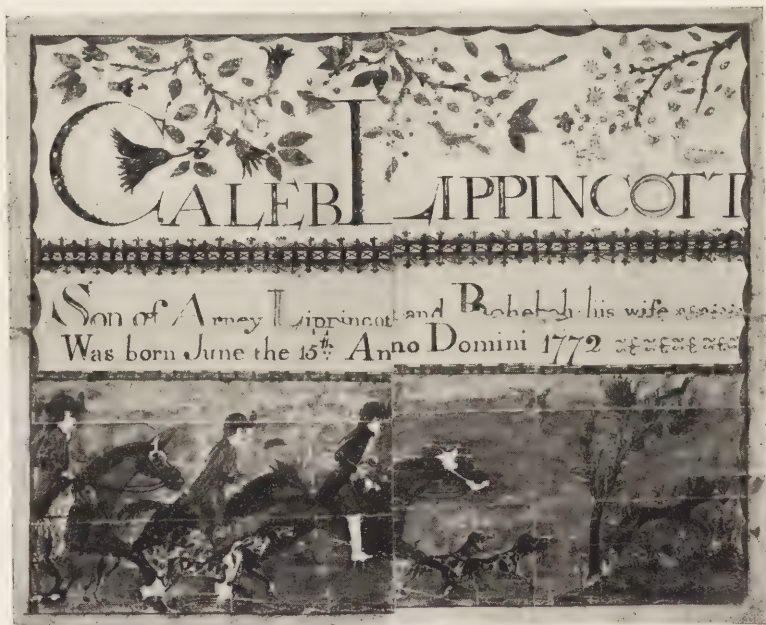 CALEB LIPPINCOTT
Son of Arney Lippincott and his wife
Was born June the 15th Anno Domini 1772